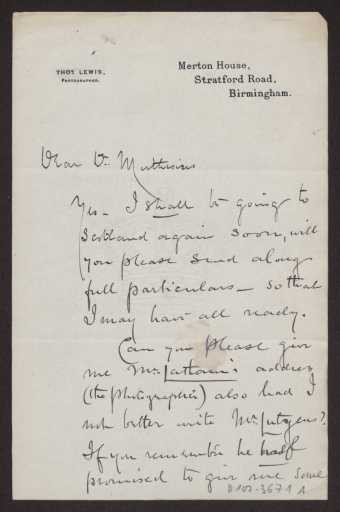 THOS. LEWIS,
PHOTOGRAPHER.
Merton House,
Stratford Road,
Birmingham.
Dear Dr. Muthesius
Yes – I shall be going to
Scotland again soon, will
you please send along
full particulars – so that
I may have all ready.
Can you please give
me Mr. address
(the photographer) also had I
not better write Mr. Lutyens?
If you remember he half
promised to give me some
D102-3671 A